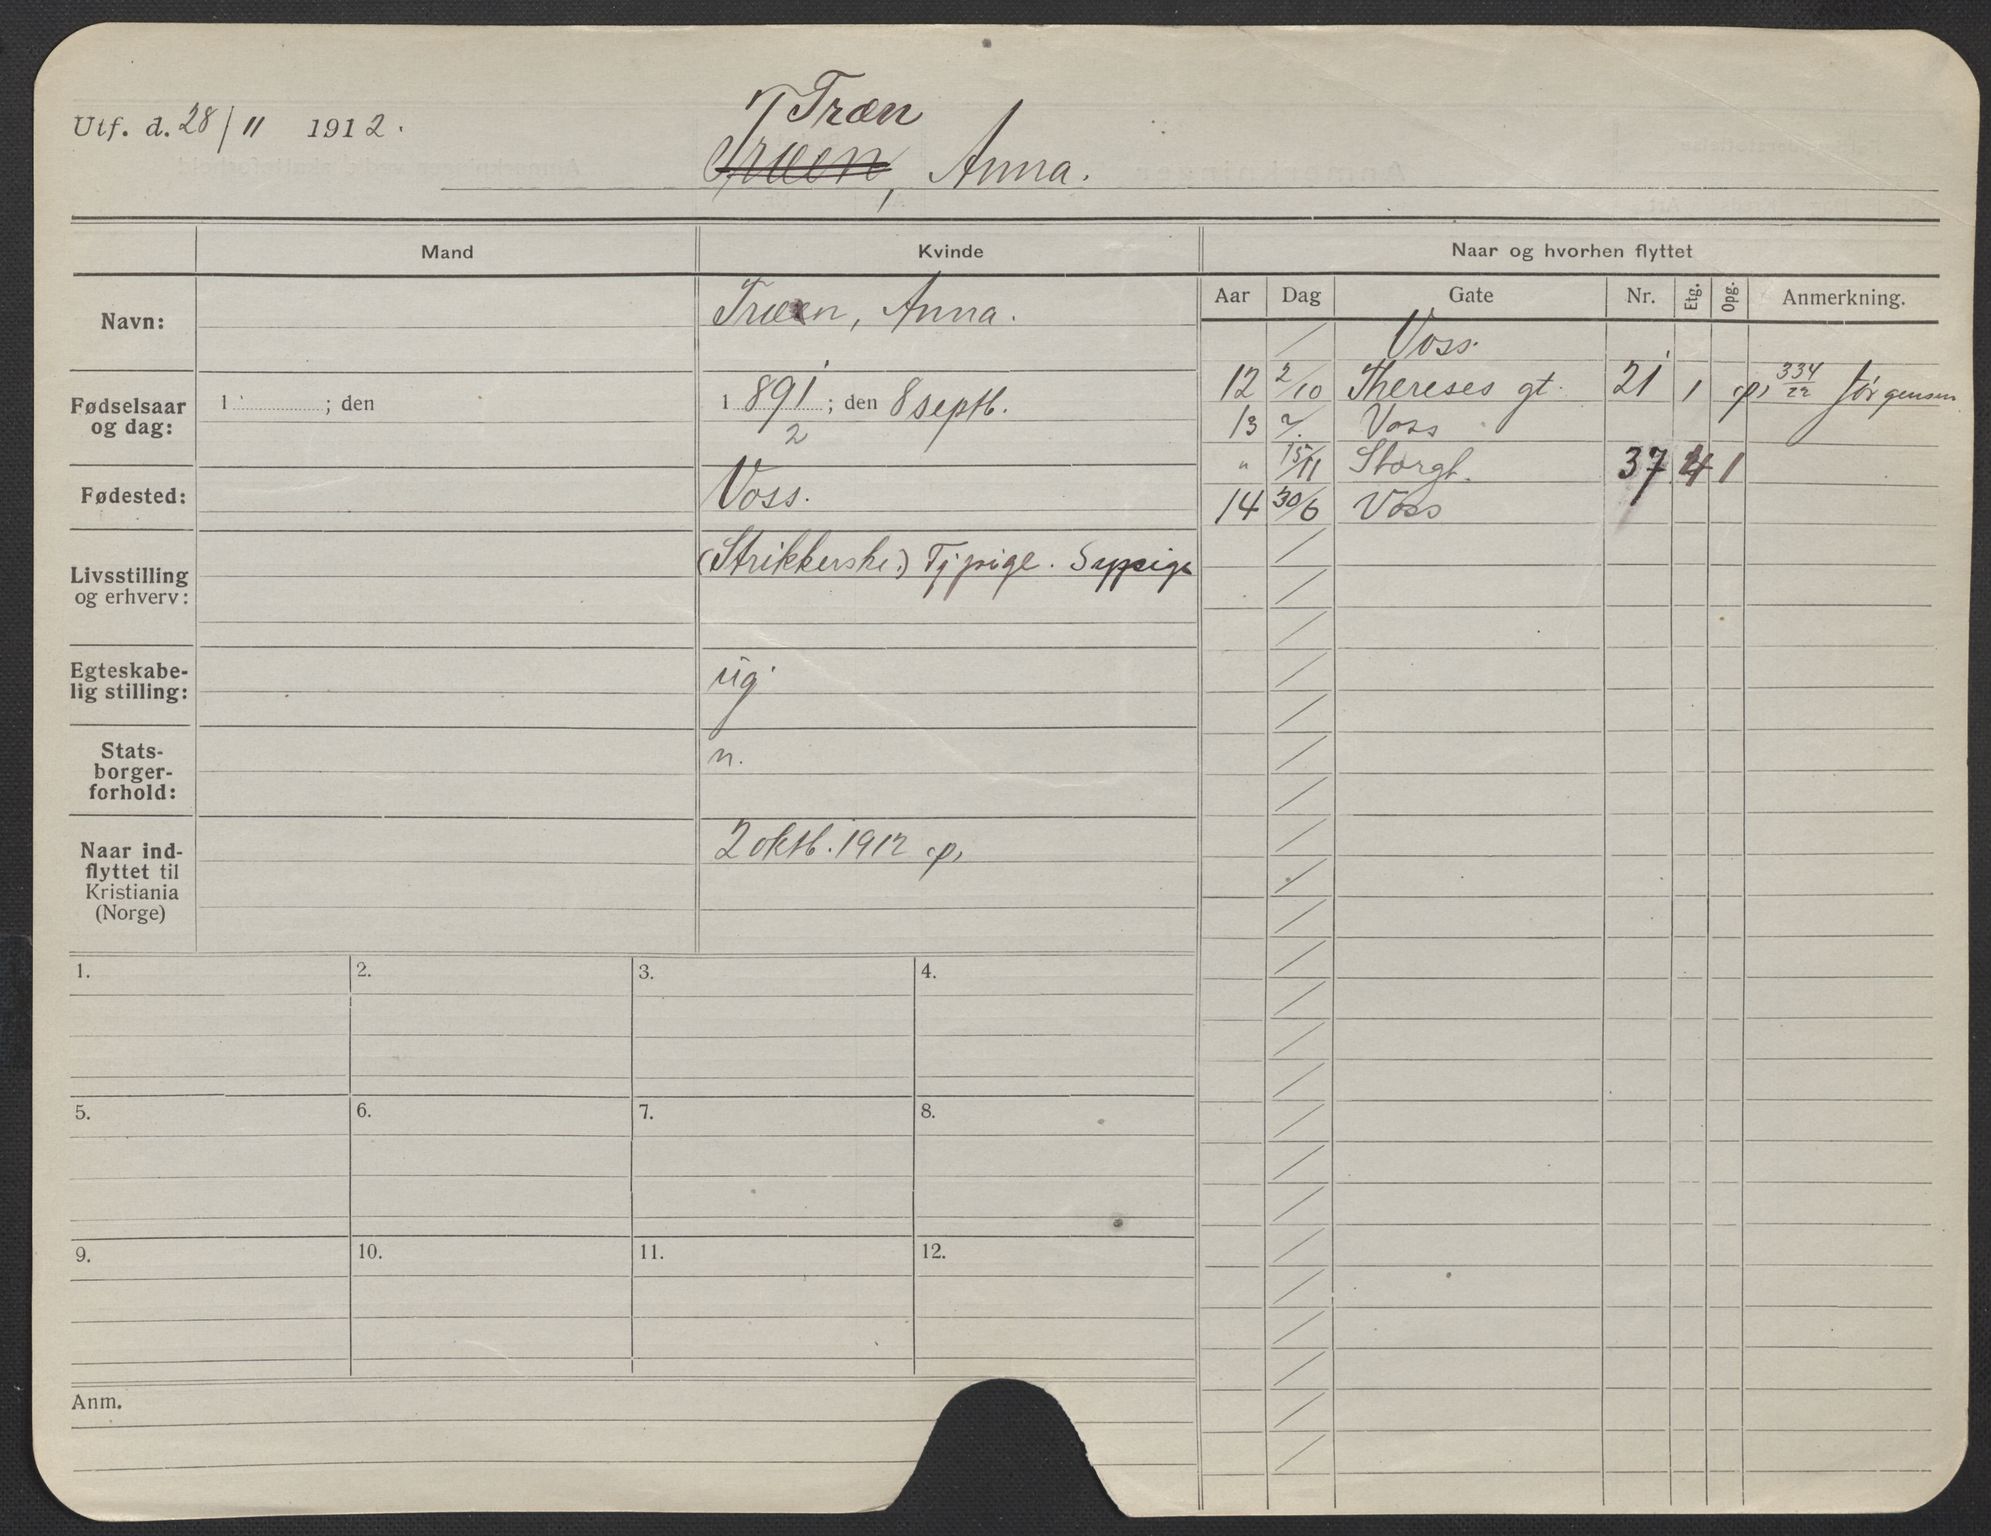 Utf. d. 28/11 1912.
Træn
Træen, Anna.
Mand
Kvinde
Naar og hvorhen flyttet
Navn:
Træen, Anna.
Aar Dag Gate Nr. Etg. Opg. Anmerkning.
Voss.
12 2/10 Thereses gt. 21 1 p, 334/22 Jørgensen
13 7. Voss
" 15/11 Storgt. 37 4 1
14 30/6 Voss
Fødselsaar
og dag:
1 ; den
1 891 ; den 8 septb.
2
Fødested:
Voss.
Livsstilling
og erhverv:
(Strikkerske.) Tjpige. Sypige
Egteskabe-
lig stilling:
ug.
Stats-
borger-
forhold:
n.
Naar ind-
flyttet til
Kristiania
(Norge)
2 oktb. 1912 p,
1. 2. 3. 4.
5. 6. 7. 8.
9. 10. 11. 12.
Anm.